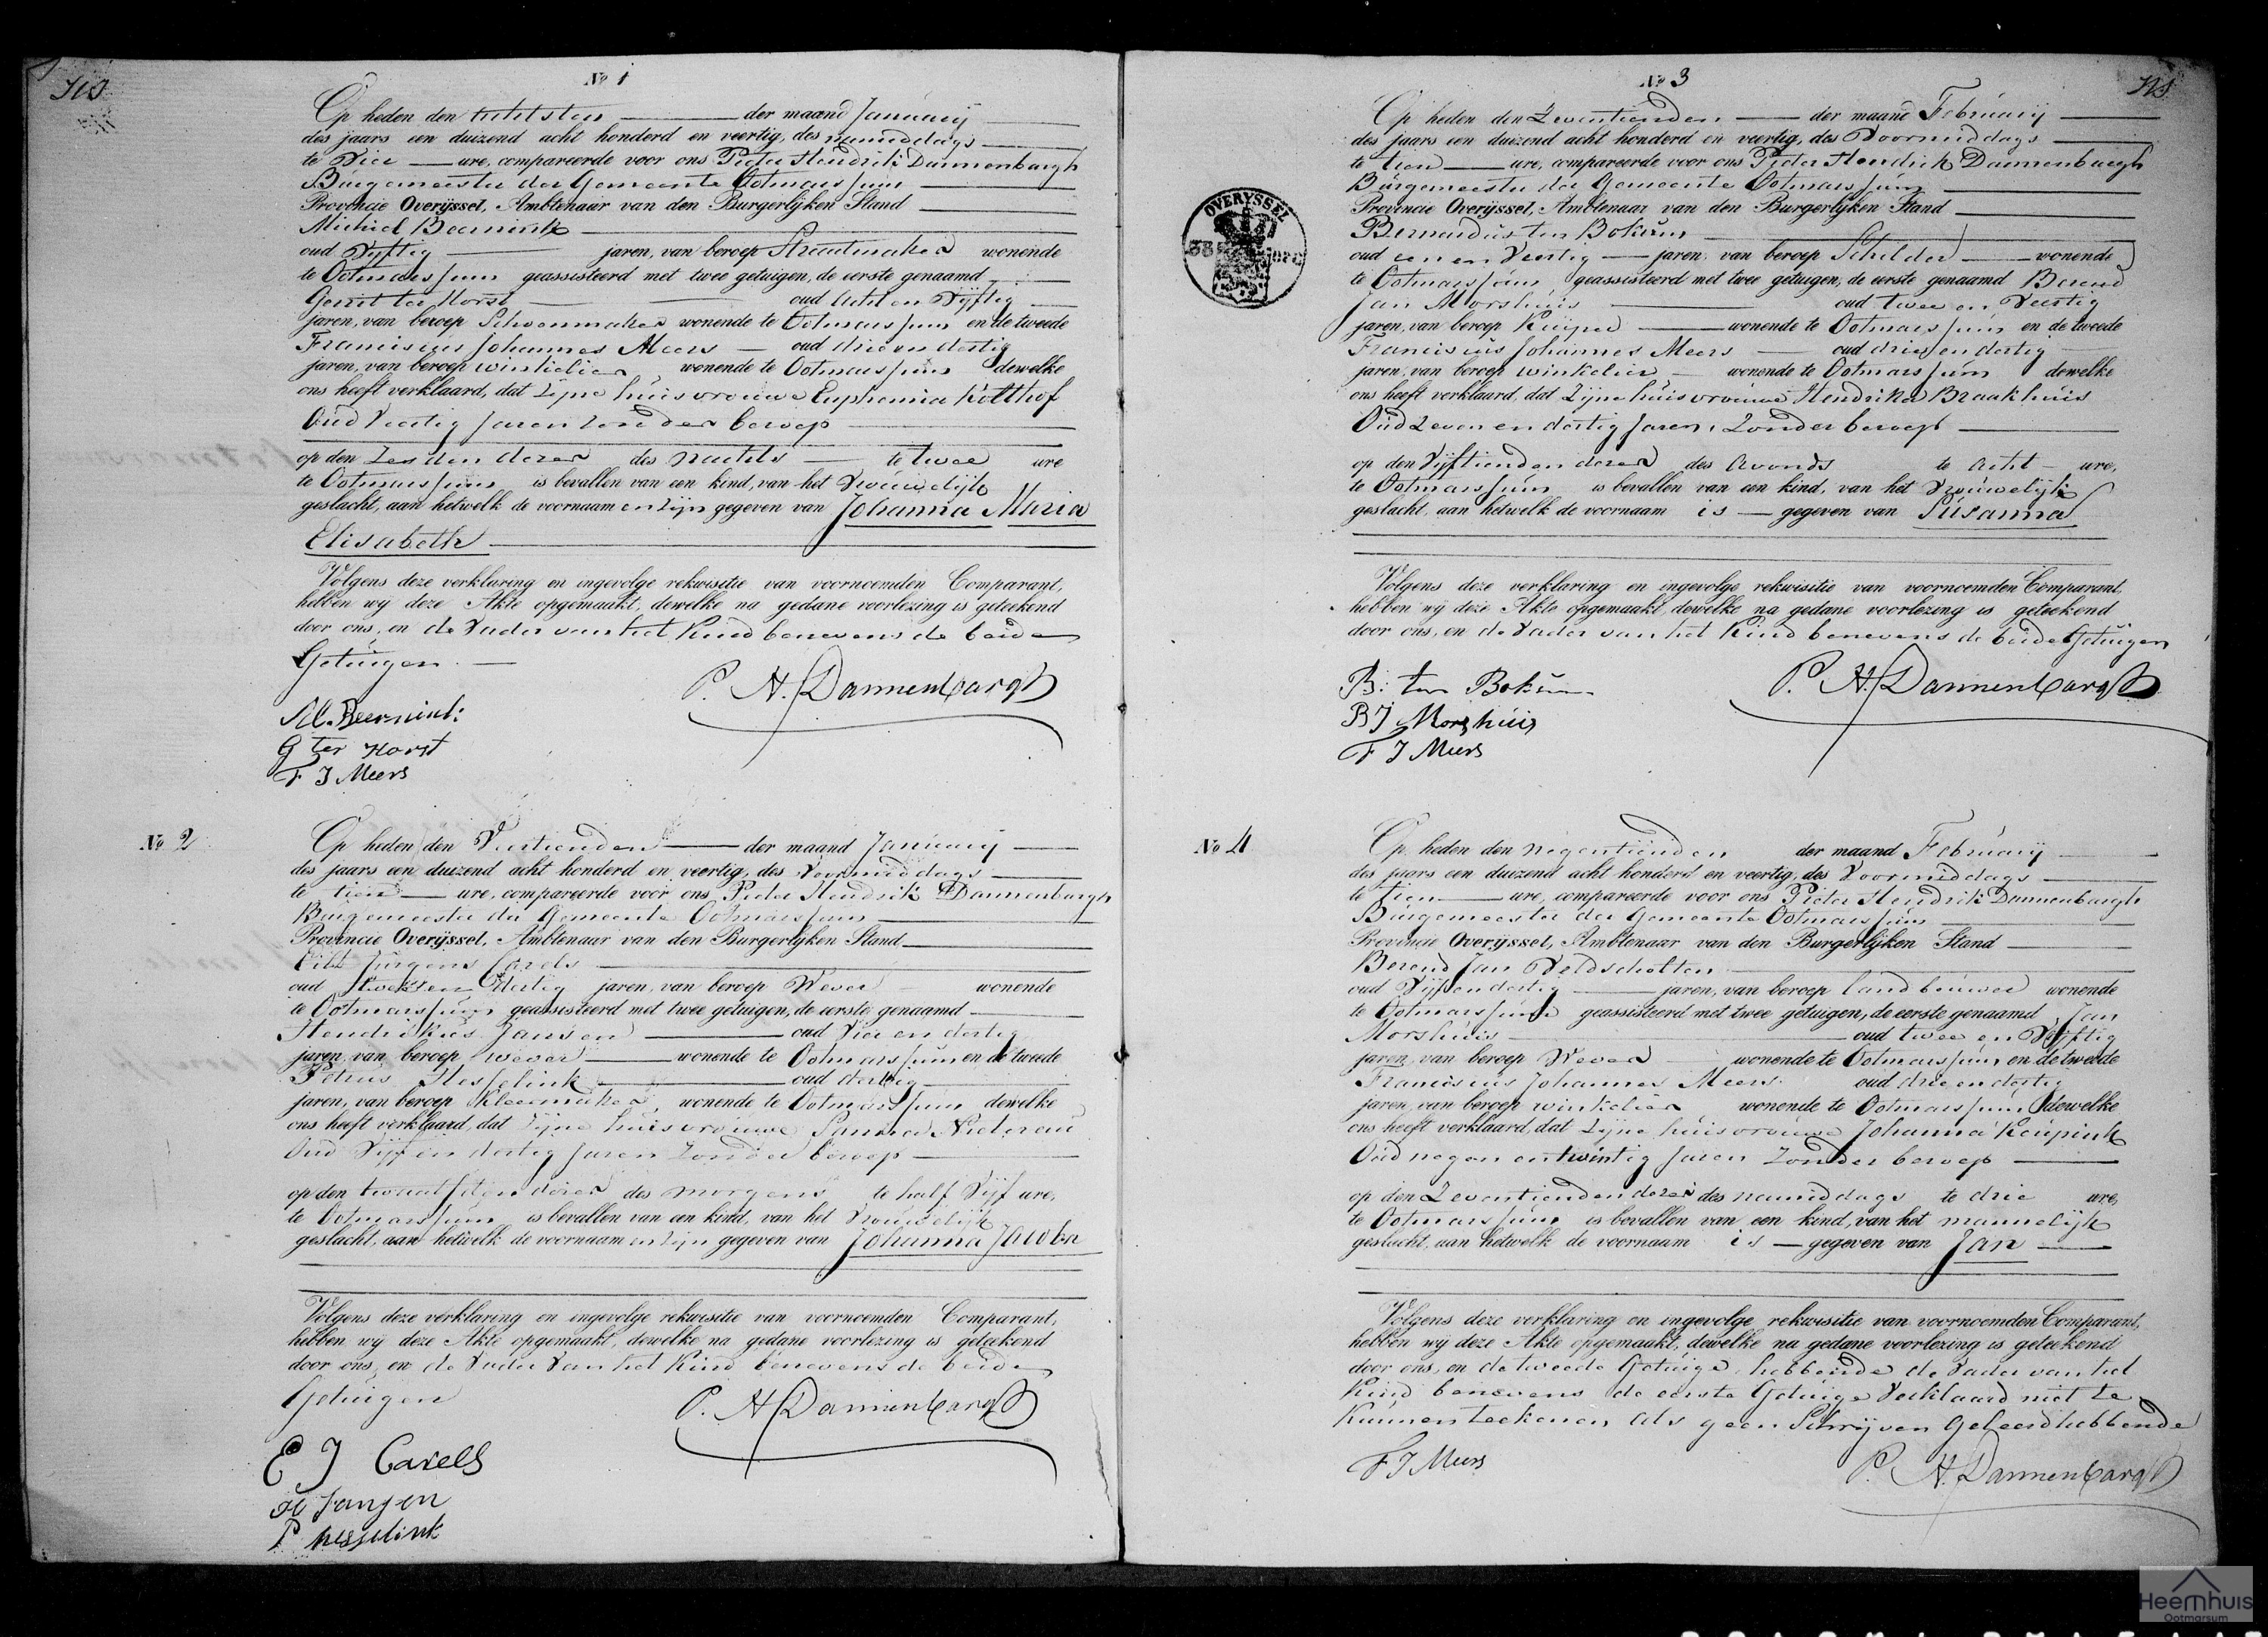 No 1
Op heden den achtsten der maand Januarij
des jaars een duizend acht honderd en veertig, des namiddags
te Vier ure, compareerde voor ons Pieter Hendrik Dannenbargh
Burgemeester der Gemeente Ootmarssum
Provincie Overijssel, Ambtenaar van den Burgerlijken Stand
Michiel Beernink
oud Vijftig jaren, van beroep Straatmaker wonende
te Ootmarssum geassisteerd met twee getuigen, de eerste genaamd
Gerrit ter Horst oud acht en Vijftig
jaren, van beroep Schoenmaker wonende te Ootmarssum en de tweede
Franciscus Johannes Meers oud drie en dertig
jaren, van beroep winkelier wonende te Ootmarssum dewelke
ons heeft verklaard, dat zijne huisvrouwe Euphemia Kolthof
Oud Veertig Jaren zonder beroep
op den Zesden dezer des nachts te twee ure
te Ootmarssum is bevallen van een kind, van het Vrouwelijk
geslacht, aan hetwelk de voornaam en zijn gegeven van Johanna Maria
Elisabeth
Volgens deze verklaring en ingevolge rekwisitie van voornoemden Comparant,
hebben wij deze Akte opgemaakt, dewelke na gedane voorlezing is geteekend
door ons, en de Vader van het Kind benevens de beide
Getuigen
P. H. Dannenbargh
M. Beernink
G ter Horst
F J Meers
No 2
Op heden den Veertienden der maand Januarij
des jaars een duizend acht honderd en veertig, des Voormiddags
te tien ure, compareerde voor ons Pieter Hendrik Dannenbargh
Burgemeester der Gemeente Ootmarssum
Provincie Overijssel, Ambtenaar van den Burgerlijken Stand
Jurgens Carels
oud twee en Dertig jaren, van beroep Wever wonende
te Ootmarssum geassisteerd met twee getuigen, de eerste genaamd
Hendrikus Jansen oud Vier en dertig
jaren, van beroep wever wonende te Ootmarssum en de tweede
Petrus Hesselink oud dertig
jaren, van beroep Kleermaker wonende te Ootmarssum dewelke
ons heeft verklaard, dat zijne huisvrouwe Sanna
Oud Vijf en dertig Jaren zonder beroep
op den twaalfden dezer des morgens te half Vijf ure,
te Ootmarssum is bevallen van een kind, van het Vrouwelijk
geslacht, aan hetwelk de voornaam en zijn gegeven van Johanna Jacoba
Volgens deze verklaring en ingevolge rekwisitie van voornoemden Comparant,
hebben wij deze Akte opgemaakt, dewelke na gedane voorlezing is geteekend
door ons, en de Vader van het Kind benevens de beide
Getuigen
P. H. Dannenbargh
E J Carels
H Jansen
P Hesselink
No 3
Op heden den Zeventienden der maand Februarij
des jaars een duizend acht honderd en veertig, des Voormiddags
te tien ure, compareerde voor ons Pieter Hendrik Dannenbargh
Burgemeester der Gemeente Ootmarssum
Provincie Overijssel, Ambtenaar van den Burgerlijken Stand
Bernardus ten Bokum
oud een en Veertig jaren, van beroep Schilder wonende
te Ootmarssum geassisteerd met twee getuigen, de eerste genaamd Berend
Jan Morshuis oud twee en Veertig
jaren, van beroep Kuiper wonende te Ootmarssum en de tweede
Franciscus Johannes Meers oud drie en dertig
jaren, van beroep winkelier wonende te Ootmarssum dewelke
ons heeft verklaard, dat zijne huisvrouwe Hendrika Braakhuis
Oud Zeven en dertig Jaren, zonder beroep
op den Vijftienden dezer des avonds te acht ure,
te Ootmarssum is bevallen van een kind, van het Vrouwelijk
geslacht, aan hetwelk de voornaam is gegeven van Susanna
Volgens deze verklaring en ingevolge rekwisitie van voornoemden Comparant,
hebben wij deze Akte opgemaakt, dewelke na gedane voorlezing is geteekend
door ons, en de Vader van het Kind benevens de beide Getuigen
P. H. Dannenbargh
B: ten Bokum
B J Morshuis
F J Meers
OVERYSSEL
No 4
Op heden den negentienden der maand Februarij
des jaars een duizend acht honderd en veertig, des Voormiddags
te tien ure, compareerde voor ons Pieter Hendrik Dannenbargh
Burgemeester der Gemeente Ootmarssum
Provincie Overijssel, Ambtenaar van den Burgerlijken Stand
Berend Jan Veldscholten
oud Vijf en dertig jaren, van beroep landbouwer wonende
te Ootmarssum geassisteerd met twee getuigen, de eerste genaamd Jan
Morshuis oud twee en Vijftig
jaren, van beroep Wever wonende te Ootmarssum en de tweede
Franciscus Johannes Meers oud drie en dertig
jaren, van beroep winkelier wonende te Ootmarssum dewelke
ons heeft verklaard, dat zijne huisvrouwe Johanna Keupink
Oud negen en twintig Jaren zonder beroep
op den Zeventienden dezer des namiddags te drie ure,
te Ootmarssum is bevallen van een kind, van het mannelijk
geslacht, aan hetwelk de voornaam is gegeven van Jan
Volgens deze verklaring en ingevolge rekwisitie van voornoemden Comparant,
hebben wij deze Akte opgemaakt, dewelke na gedane voorlezing is geteekend
door ons, en de tweede Getuige, hebbende de Vader van het
Kind benevens de eerste Getuige Verklaard niet te
Kunnen teekenen als geen Schrijven Geleerd hebbende
F J Meers
P. H. Dannenbargh
Heemhuis
Ootmarsum